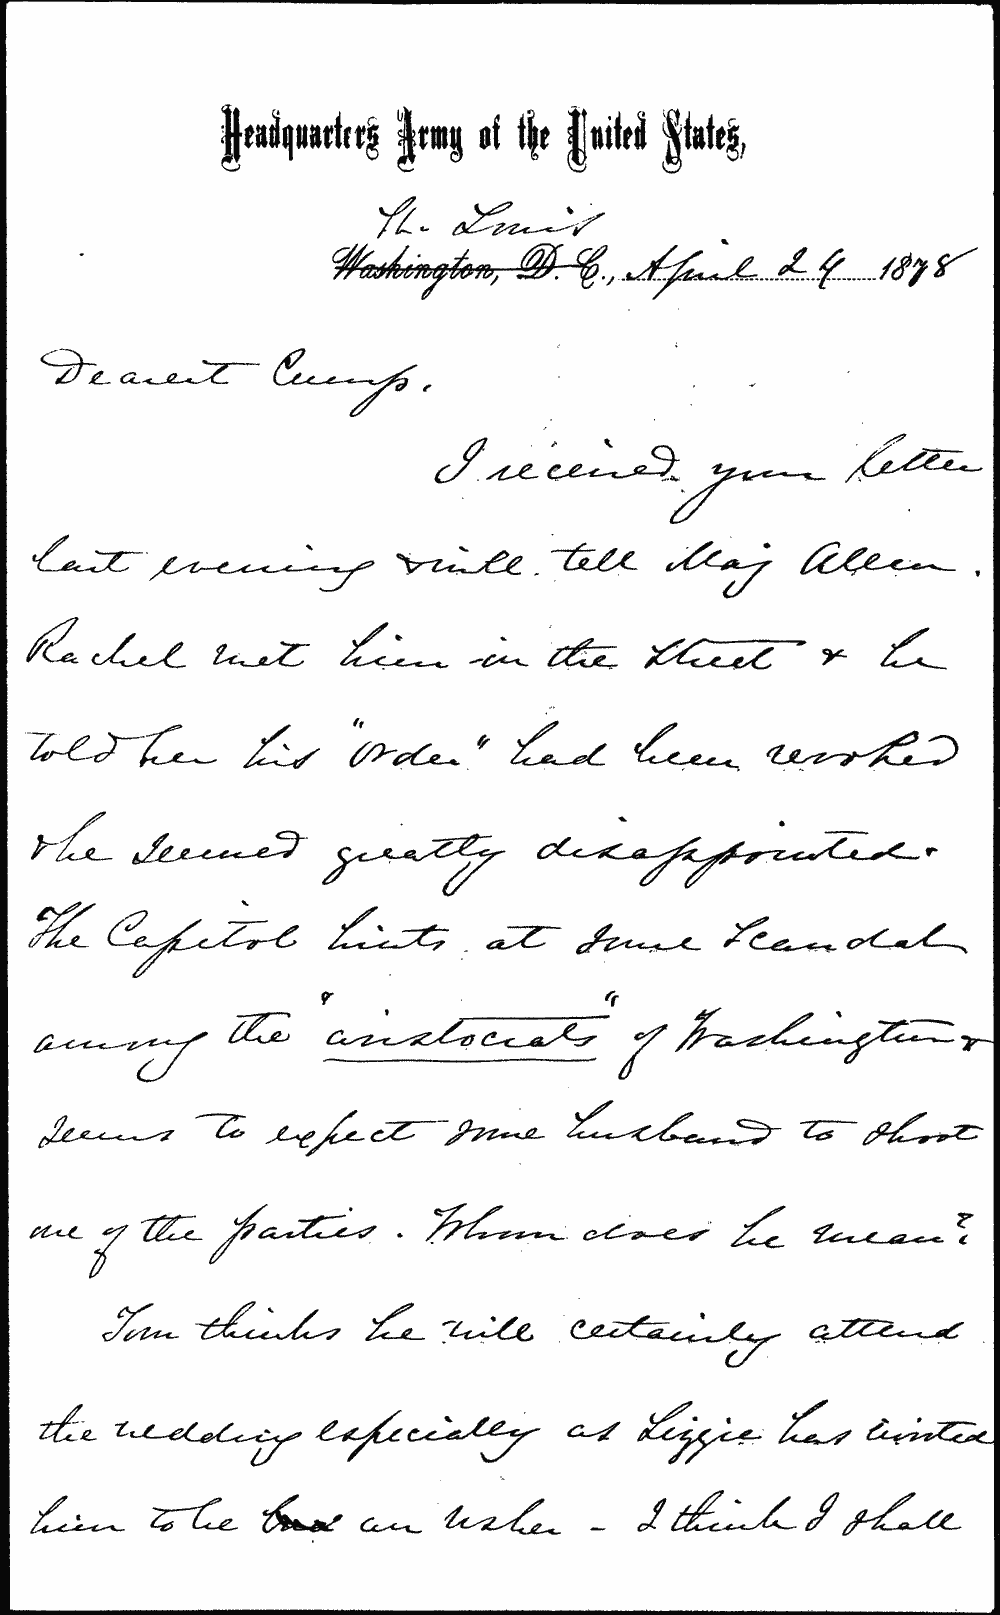 Headquarters Army of the United States,
St. Louis
Washington, D. C., April 24 1878
Dearest Cump.
I received your letter
last evening & will tell Maj Allen.
Rachel met him in the street & he
told her his "order" had been revoked
& he seemed greatly disappointed.
The Capitol hints at some scandal
among the "aristocrats" of Washington &
seems to expect some husband to shoot
one of the parties. Whom does he mean?
Tom thinks he will certainly attend
the wedding especially as Lizzie has invited
him to be an usher - I think I shall